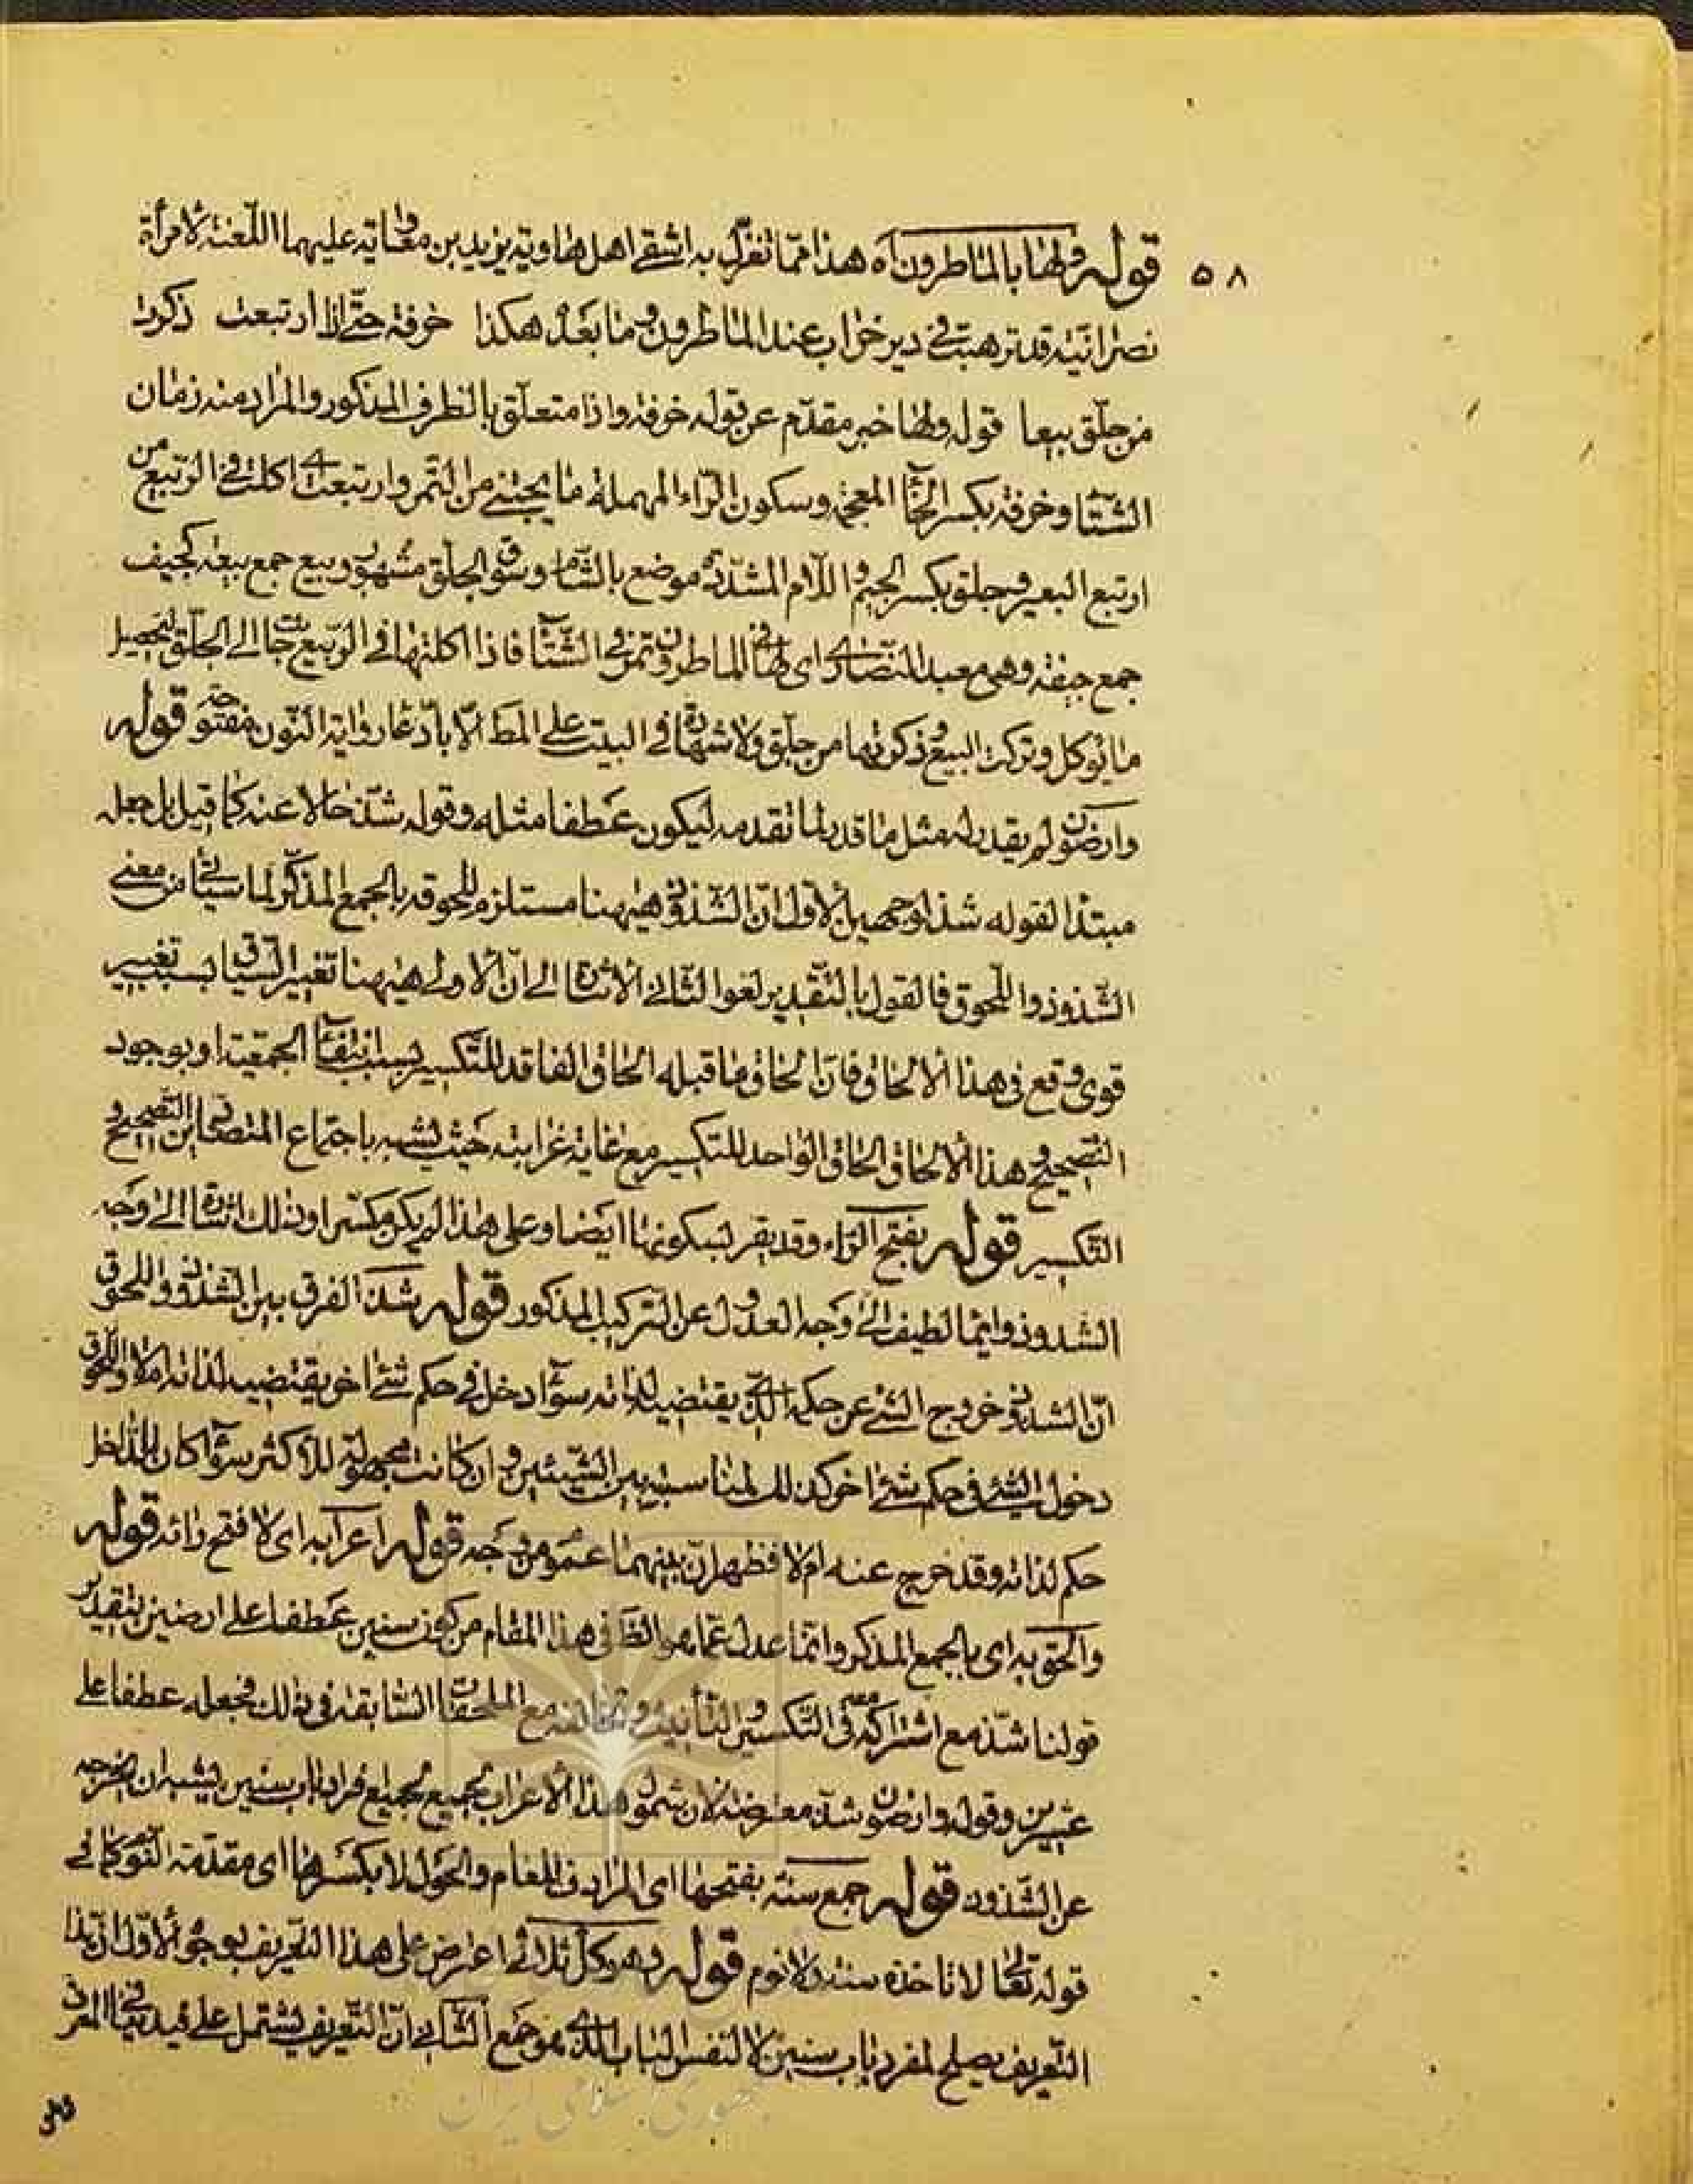 ٥٨ قوله ولها بالماطرون آه هذا مما تغزل به اشقى اهل هاوية يزيد بن معاوية عليهما اللعنة لامرأة
نصرانية قد ترهبت في دير خراب عند الماطرون وما بعده هكذا خرفة حتى اذا ارتبعت ذكرت
من جلق بيعا قوله ولها خبر مقدم عن قوله خرفة واذا متعلق بالظرف المذكور والمراد منه زمان
الشتا وخرفة بكسر الخآ المعجمة وسكون الراء المهملة ما يجتنى من التمر وارتبعت اى اكلت في الربيع من
ارتبع البعير وجلق بكسر الجيم واللام المشددة موضع بالشام وسوق الجلق مشهور وبيع جمع بيعة كجيف
جمع جيفة وهى معبد للنصارى اى لها في الماطرون تمر في الشتآ فاذا اكلتها في الربيع جات الى الجلق لتحصيل
ما يؤكل وتركت البيع وذكرتها من جلق ولا شهادة في البيت على المط الا بادعا رواية النون مفتوحة قوله
وارضون لم يقدر له مثل ما قدر لما تقدمه ليكون عطفا مثله وقوله شذ حالا عنه كما قيل بل جعله
مبتدا لقوله شذ لوجهين الاول ان الشذوذ هيهنا مستلزم للحوقه بالجمع المذكر لما سيأتي من معنى
الشذوذ واللحوق فالقول بالتقدير لغو الثاني الاشارة الى ان الاولى هيهنا تغيير السياق بسبب تغيير
قوى وقع فى هذا الالحاق فان الحاق ما قبله الحاق الفاقد للتكسير بسبب انتفآ الجمعية او بوجود
التصحيح وهذا الالحاق الحاق الواحد للتكسير مع غاية غرابته حيث يشبه باجتماع المتضادين التصحيح و
التكسير قوله بفتح الراء وقد يقر بسكونها ايضا وعلى هذا لم يكن مكسرا وذلك اشارة الى وجه
الشذوذ وايما لطيف الى وجه العدول عن التركيب المذكور قوله شذ الفرق بين الشذوذ واللحوق
ان الشذوذ خروج الشئ عن حكمه الذى يقتضيه لذاته سوآ دخل في حكم شئ اخر يقتضيه لذاته ام لا واللحوق
دخول الشئ في حكم شئ اخر كذلك لمناسبة بين الشيئين وان كانت مجهولة للاكثر سوآ كان للداخل
حكم لذاته وقد خرج عنه ام لا فظهر ان بينهما عموم من وجه قوله اعرابه اى لا فتح رائه قوله
والحق به اى بالجمع المذكر وانما عدل عما هو الظ فى هذا المقام من كون سنين عطفا على ارضين بتقدير
قولنا شذ مع اشتراكه معه في التكسير والتأنيث وتخالفه مع الملحقات السابقة في ذلك فجعله عطفا على
عشرين وقوله وارضون شذ معترضة لان شمول هذا الاعراب لجميع افراد باب سنين يشبه ان يخرجه
عن الشذوذ قوله جمع سنة بفتحها اى المرادف للعام والحول لا بكسرها اى مقدمة النوم كما في
قوله تعالى لا تاخذه سنة ولا نوم قوله وهو كل ثلاثى اعترض على هذا التعريف بوجوه الاول ان هذا
التعريف يصلح لمفرد باب سنين لا لنفس الباب الذى هو جمع الثاني ان التعريف يشتمل على قيد